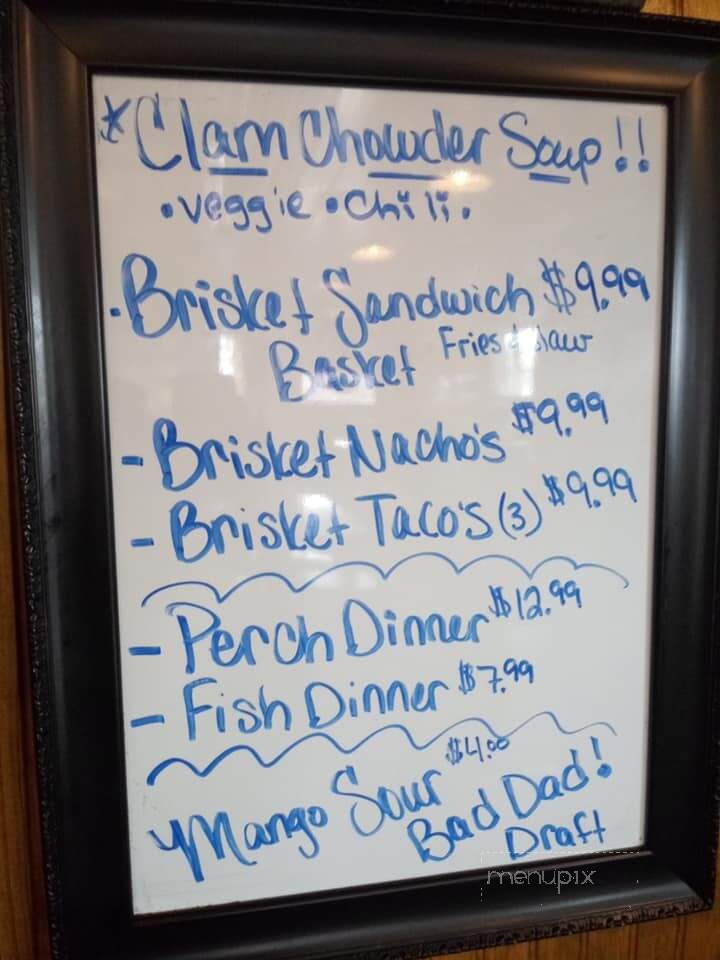 *Clam Chowder Soup!!
•veggie •Chili•
•Brisket Sandwich $9.99
Basket Fries & slaw
-Brisket Nacho's $9.99
-Brisket Taco's (3) $9.99
-Perch Dinner $12.99
-Fish Dinner $7.99
Mango Sour $4.00
Bad Dad!
Draft
menupix